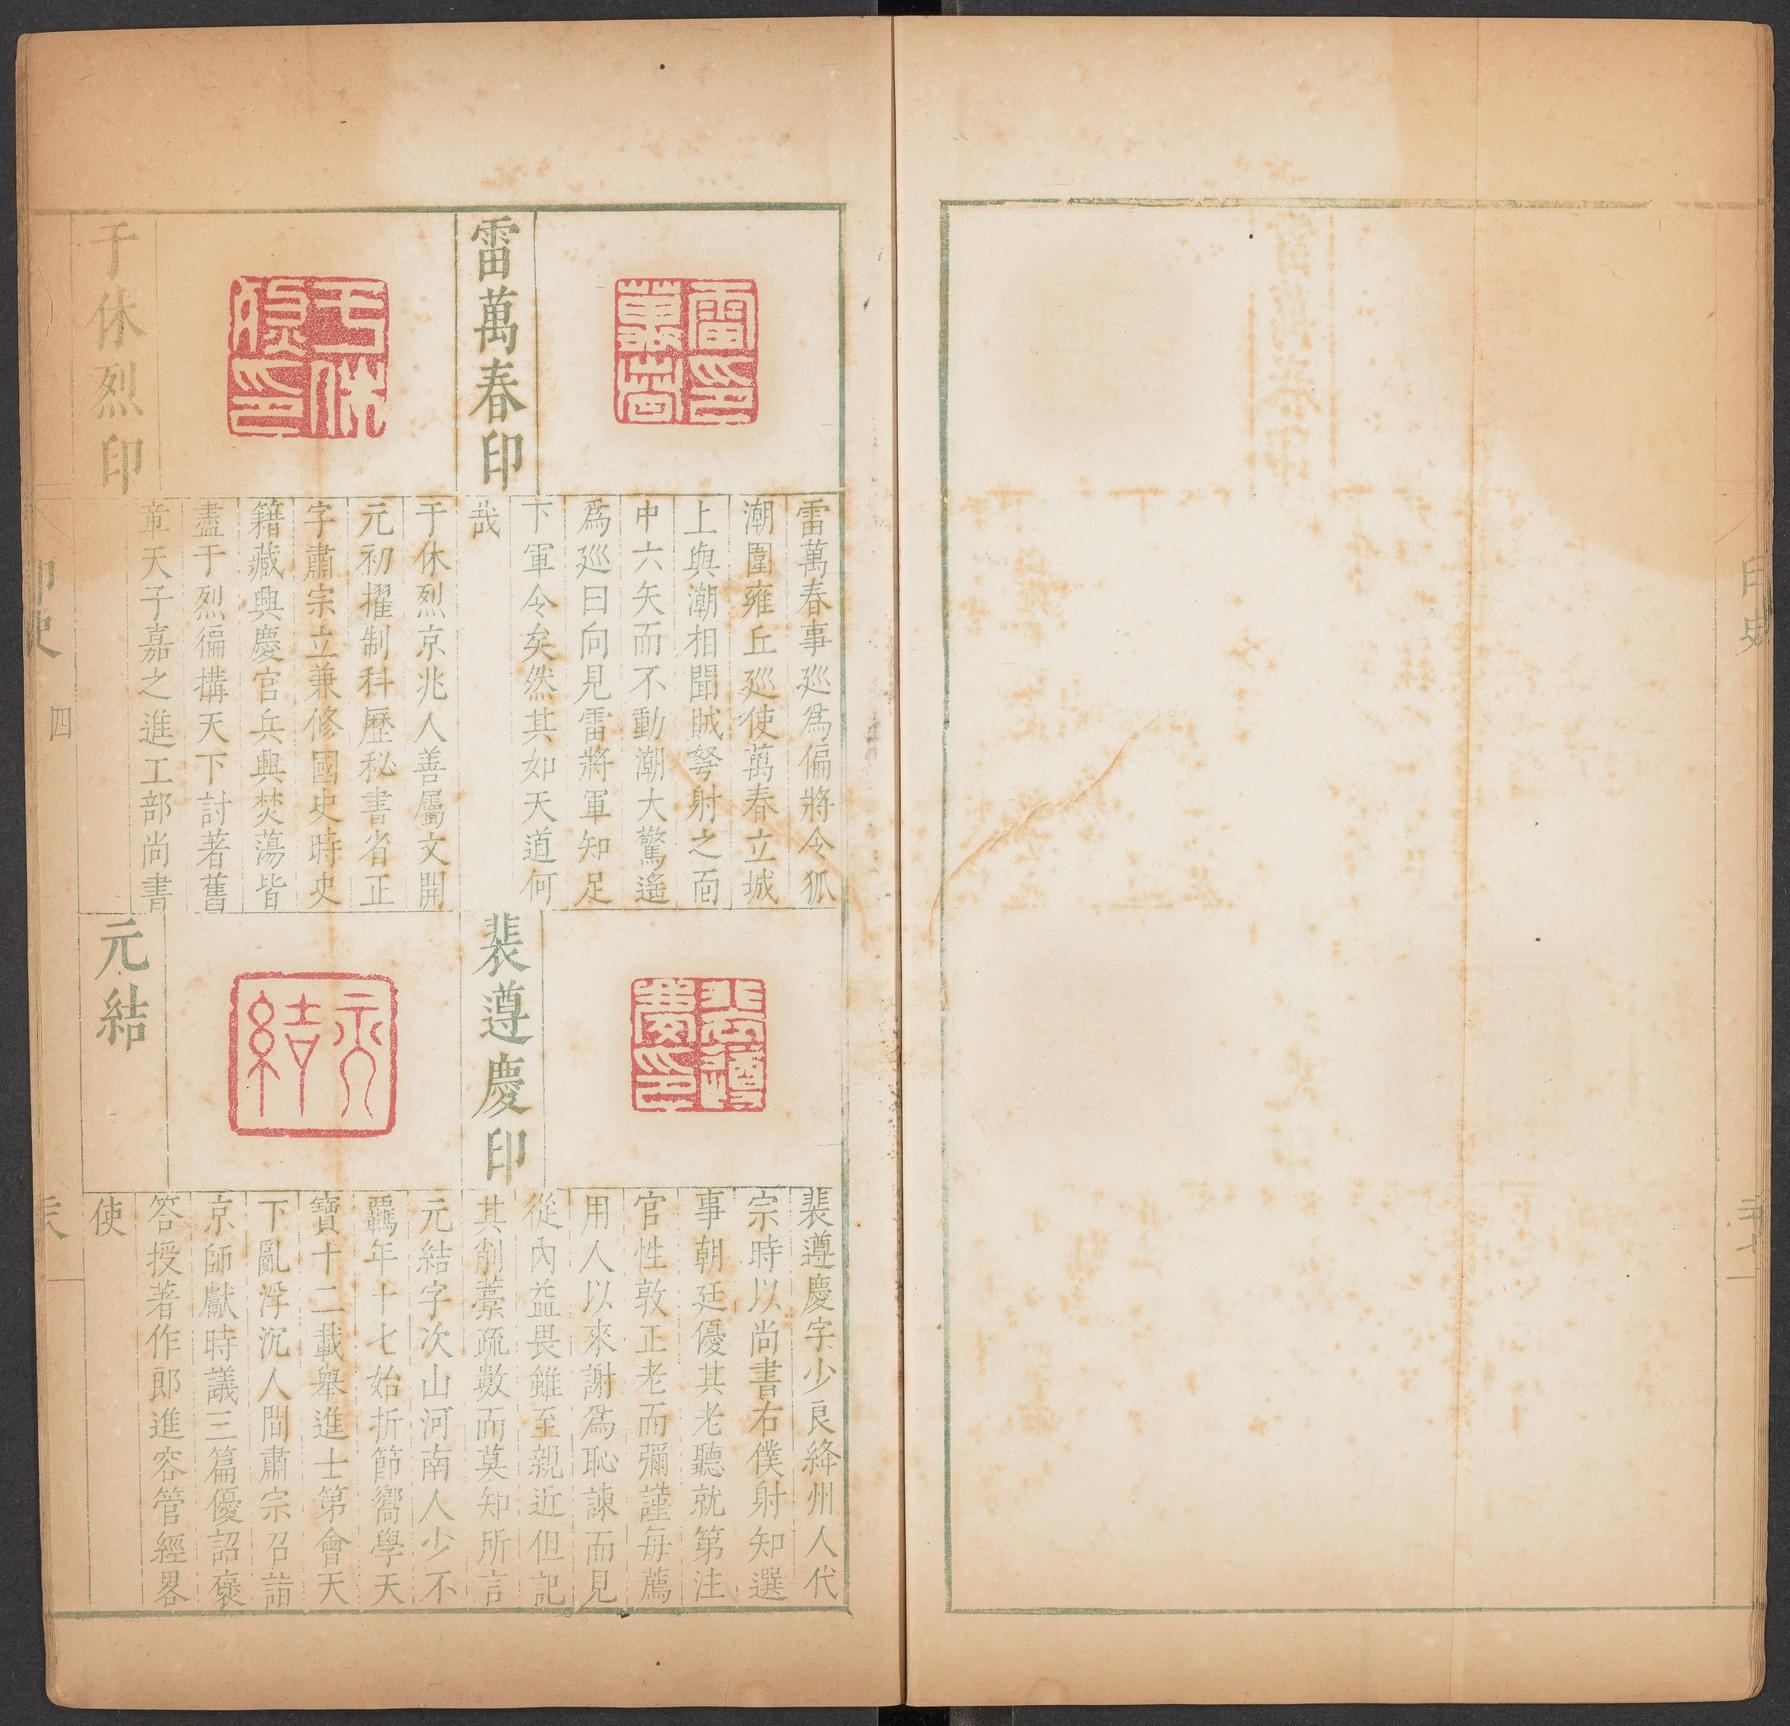 印史
雷萬春印
雷萬春事廵爲偏將令狐
潮圍雍丘廵使萬春立城
上與潮相聞賊弩射之面
中六矢而不動潮大驚遙
爲廵曰向見雷將軍知足
下軍令矣然其如天道何
哉
于休烈印
于休烈京兆人善屬文開
元初擢制科歷秘書省正
字肅宗立兼修國史時史
籍藏興慶官兵興焚蕩皆
盡于烈徧搆天下討著舊
章天子嘉之進工部尚書
裴遵慶印
裴遵慶字少良絳州人代
宗時以尚書右僕射知選
事朝廷優其老聽就第注
官性敦正老而彌謹每薦
用人以來謝爲恥諫而見
從內益畏雖至親近但記
其削藳疏數而莫知所言
元結
元結字次山河南人少不
羈年十七始折節嚮學天
寶十二載舉進士第會天
下亂浮沉人間肅宗召詣
京師獻時議三篇優詔褒
答授著作郎進容管經畧
使
四